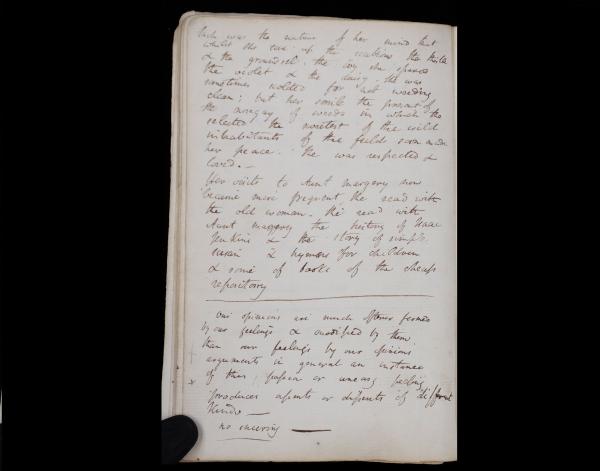 Such was the nature of her mind that
whilst she tore up the scabious the thistle
& the groundsel. the ivy she spared
the violet & the daisy. she was
sometimes scolded for not weeding
clean; but her smile the present of
the nosegay of weeds in which she
selected the sweetest of the wild
inhabitants of the fields soon made
her peace. She was respected &
loved. —
Her visits to Aunt margery now
became more frequent she read with
the old woman. She read with
Aunt margery the history of Isaac
Jenkins & the story of simple
susan & hymns for children
& some of books of the cheap
repository
Our opinions are much oftener formed
by our feelings & modified by them
than our feelings by our opinions
arguments in general an instance
of this, passion or uneasy feeling
produces assents or dissents of different
kinds —
no sneering